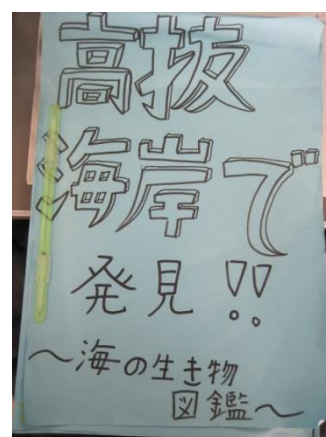 高抜
海岸で
発見!!
～海の生き物
図鑑～